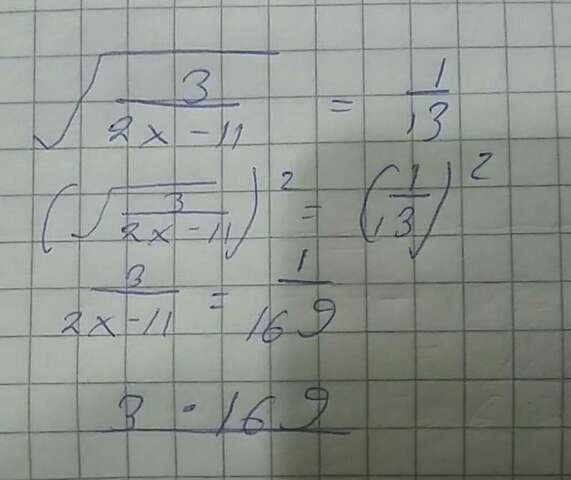 √(3/(2x-11)) = 1/13
(√(3/(2x-11)))² = (1/13)²
3/(2x-11) = 1/169
3 · 169